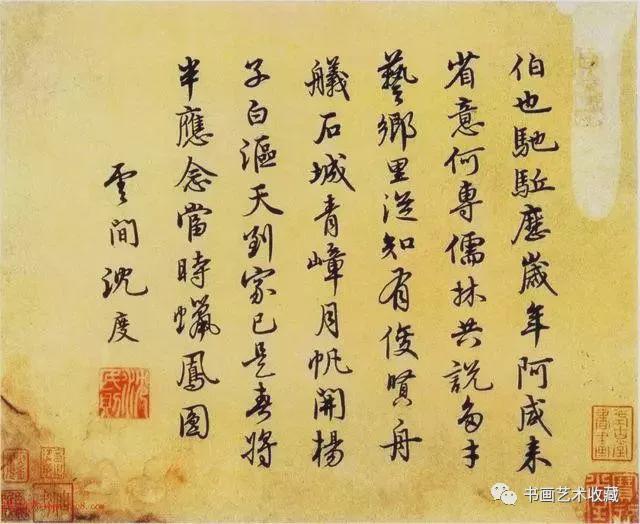 伯也馳駈歷歲年阿咸来
省意何專儒林共說多才
藝鄉里從知有俊賢舟
艤石城青嶂月帆開楊
子白漚天到家已是春將
半應念當時蠟鳳圓
雲間沈度
书画艺术收藏